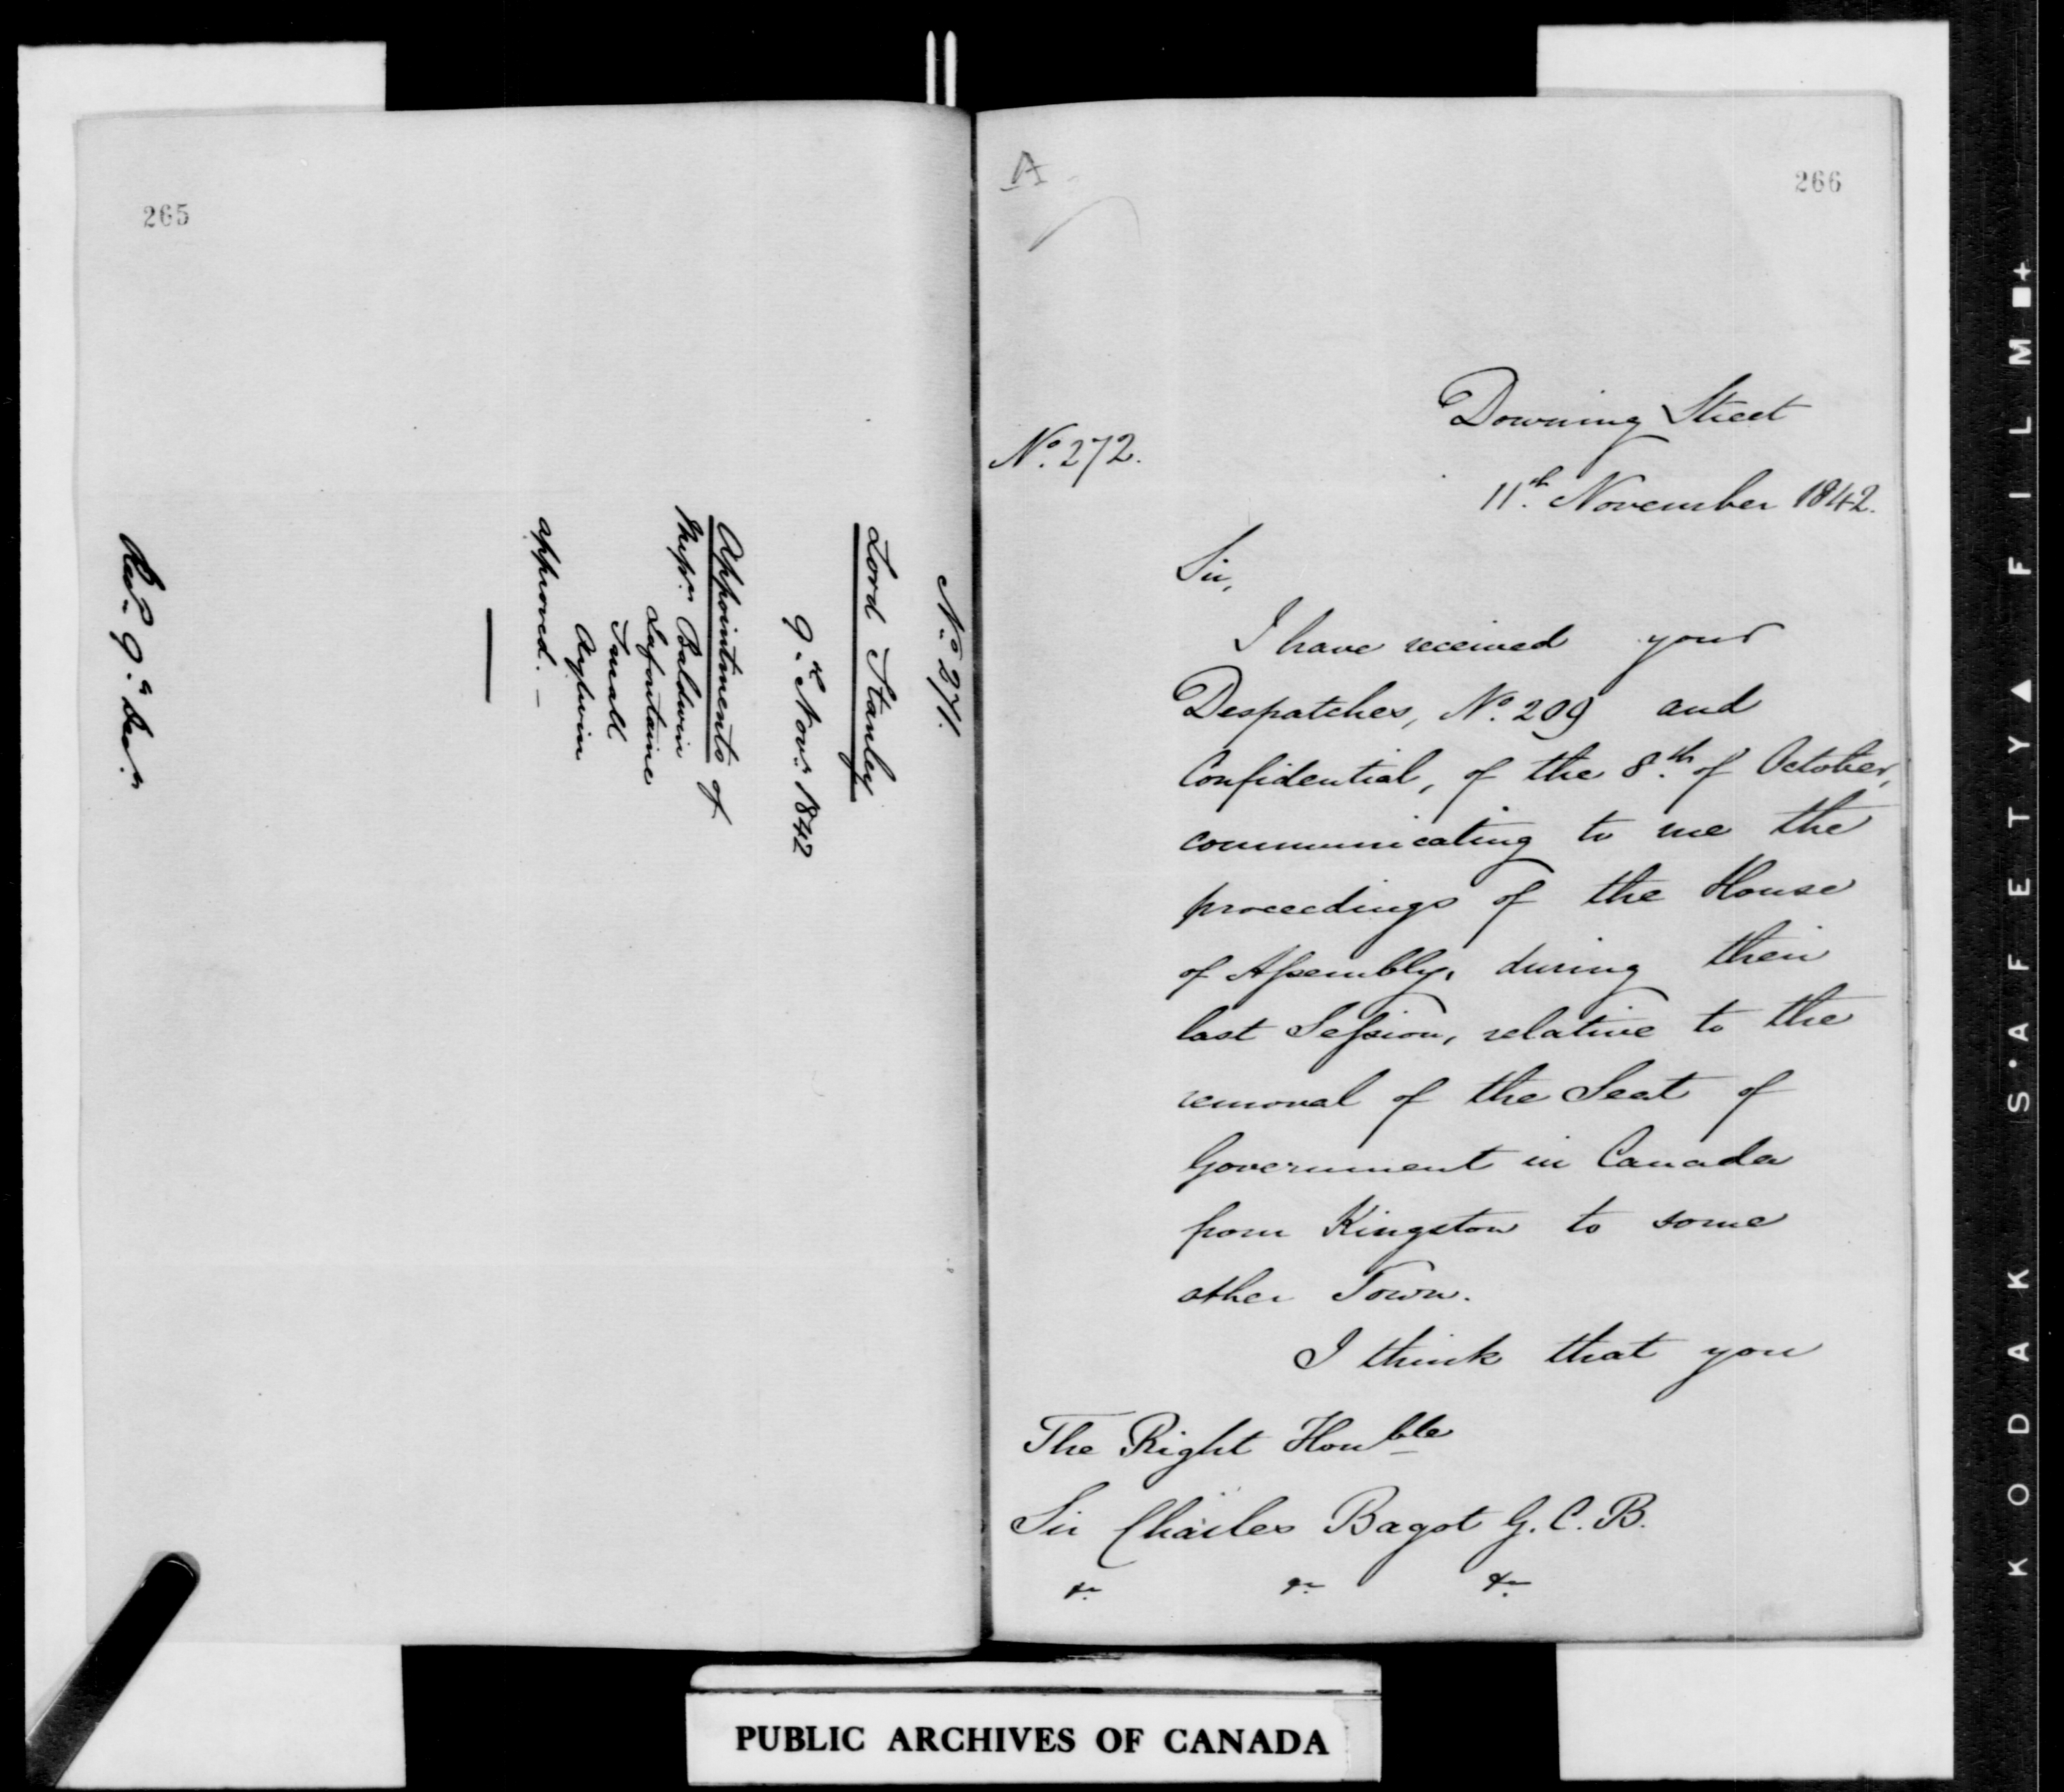 265
No. 271.
Lord Stanley
9th Novr. 1842
Appointments of
Messrs. Baldwin
Lafontaine
Small
Aylwin
approved. —
Recd. 9th Decr.
A
266
No. 272.
Downing Street
11th. November 1842.
Sir,
I have received your
Despatches, No. 209 and
Confidential, of the 8th. of October,
communicating to me the
proceedings of the House
of Assembly, during their
last Session, relative to the
removal of the Seat of
Government in Canada
from Kingston to some
other Town.
I think that you
The Right Honble
Sir Charles Bagot G.C.B.
&c. &c. &c.
PUBLIC ARCHIVES OF CANADA
KODAK S'AFETY ▲ FILM ■+